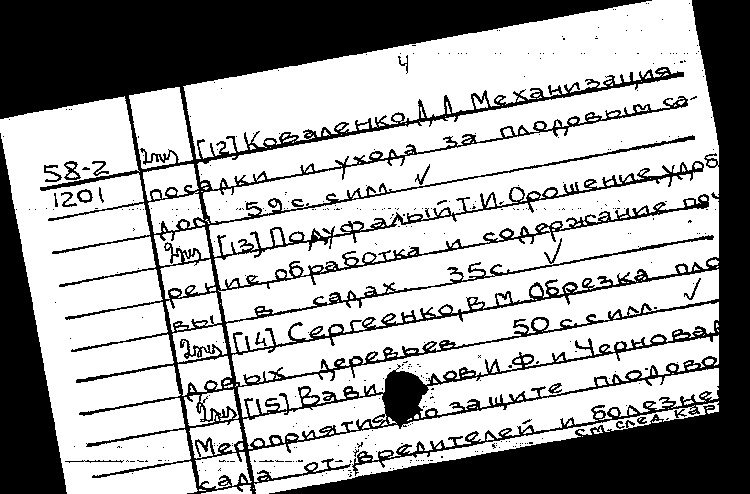 4
58-2 2пиз [12] Коваленко, Д.Д. Механизация
1201 посадки и ухода за плодовым са-
дом. 59 с. с илл. ✓
2пиз [13] Подуфалый, Т.И. Орошение, удоб
рение, обработка и содержание поч
вы в садах. 35 с. ✓
2пиз [14] Сергеенко, В.М. Обрезка пло
довых деревьев. 50 с. с илл. ✓
2пиз [15] Вави лов, И.Ф. и Чернова,
Мероприятия по защите плодово
сада от вредителей и болезне
см. след. кар